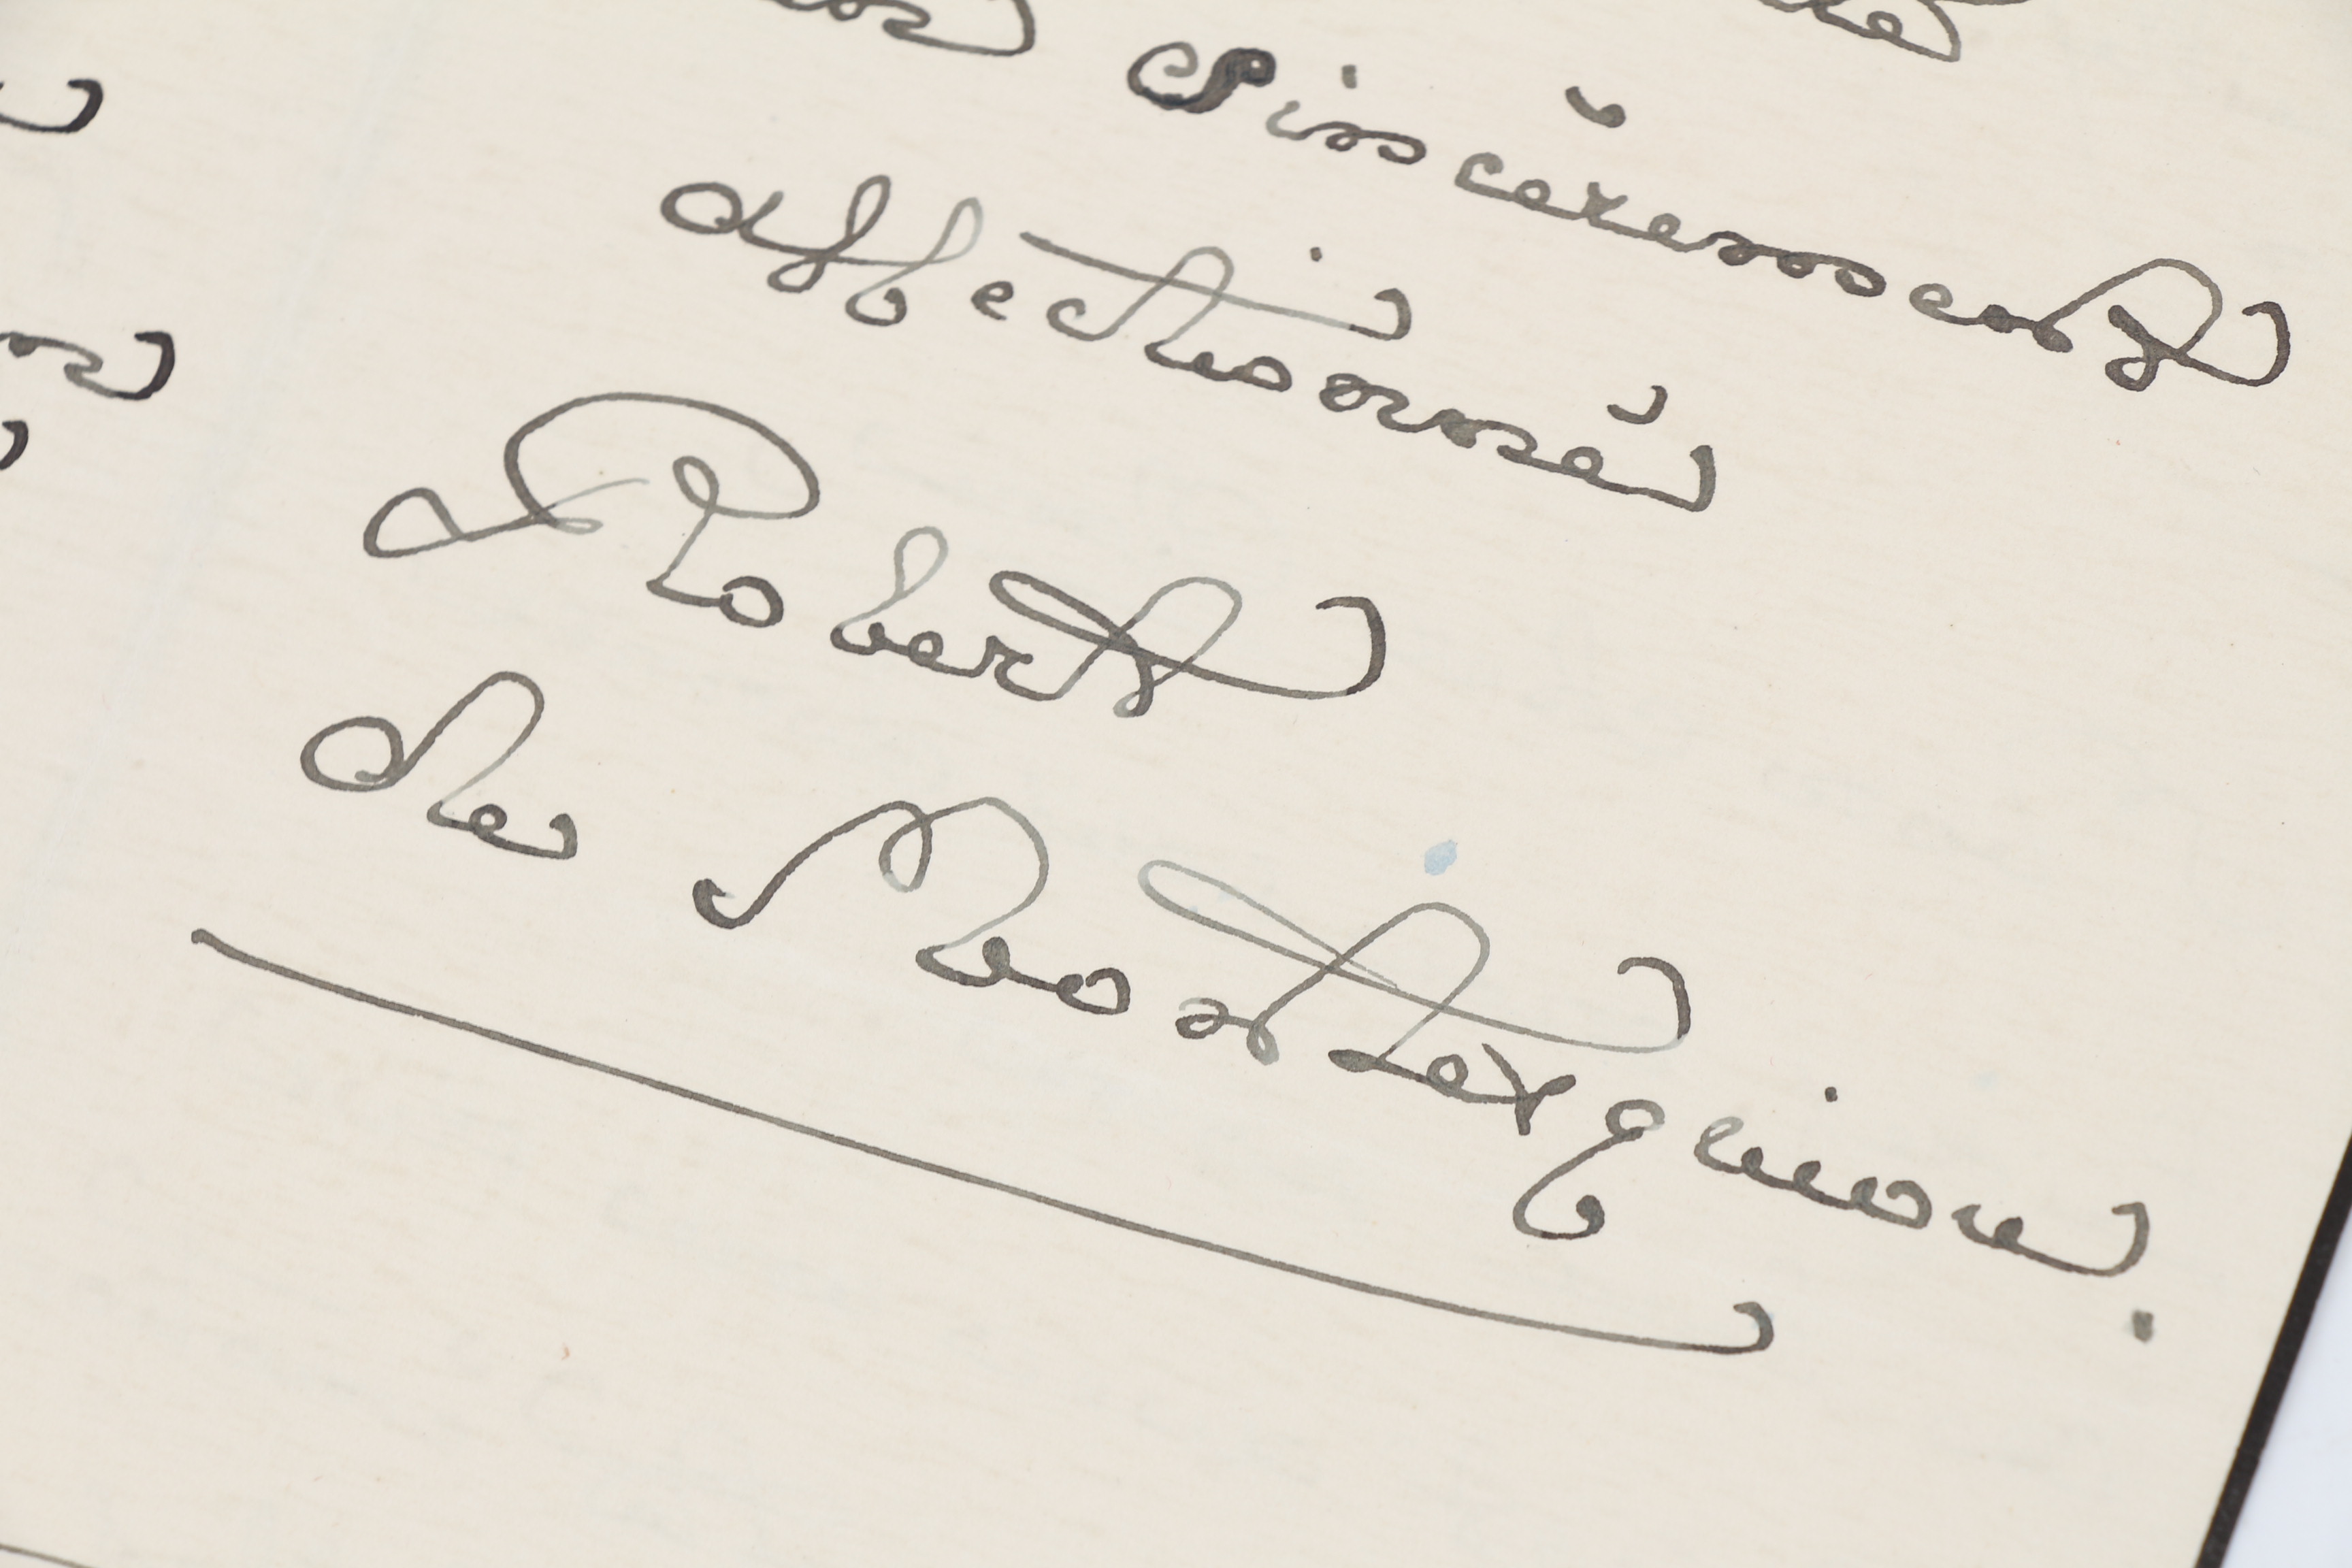 Sincèrement
affectionné
Robert
de Montesquiou.